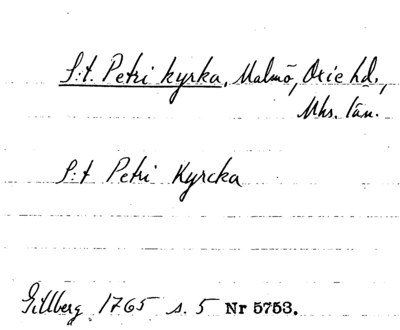 S:t. Petri kyrka, Malmö, Oxie hd.,
Mhs. län.
S:t Petri Kyrcka
Gillberg 1765 s. 5 Nr 5753.